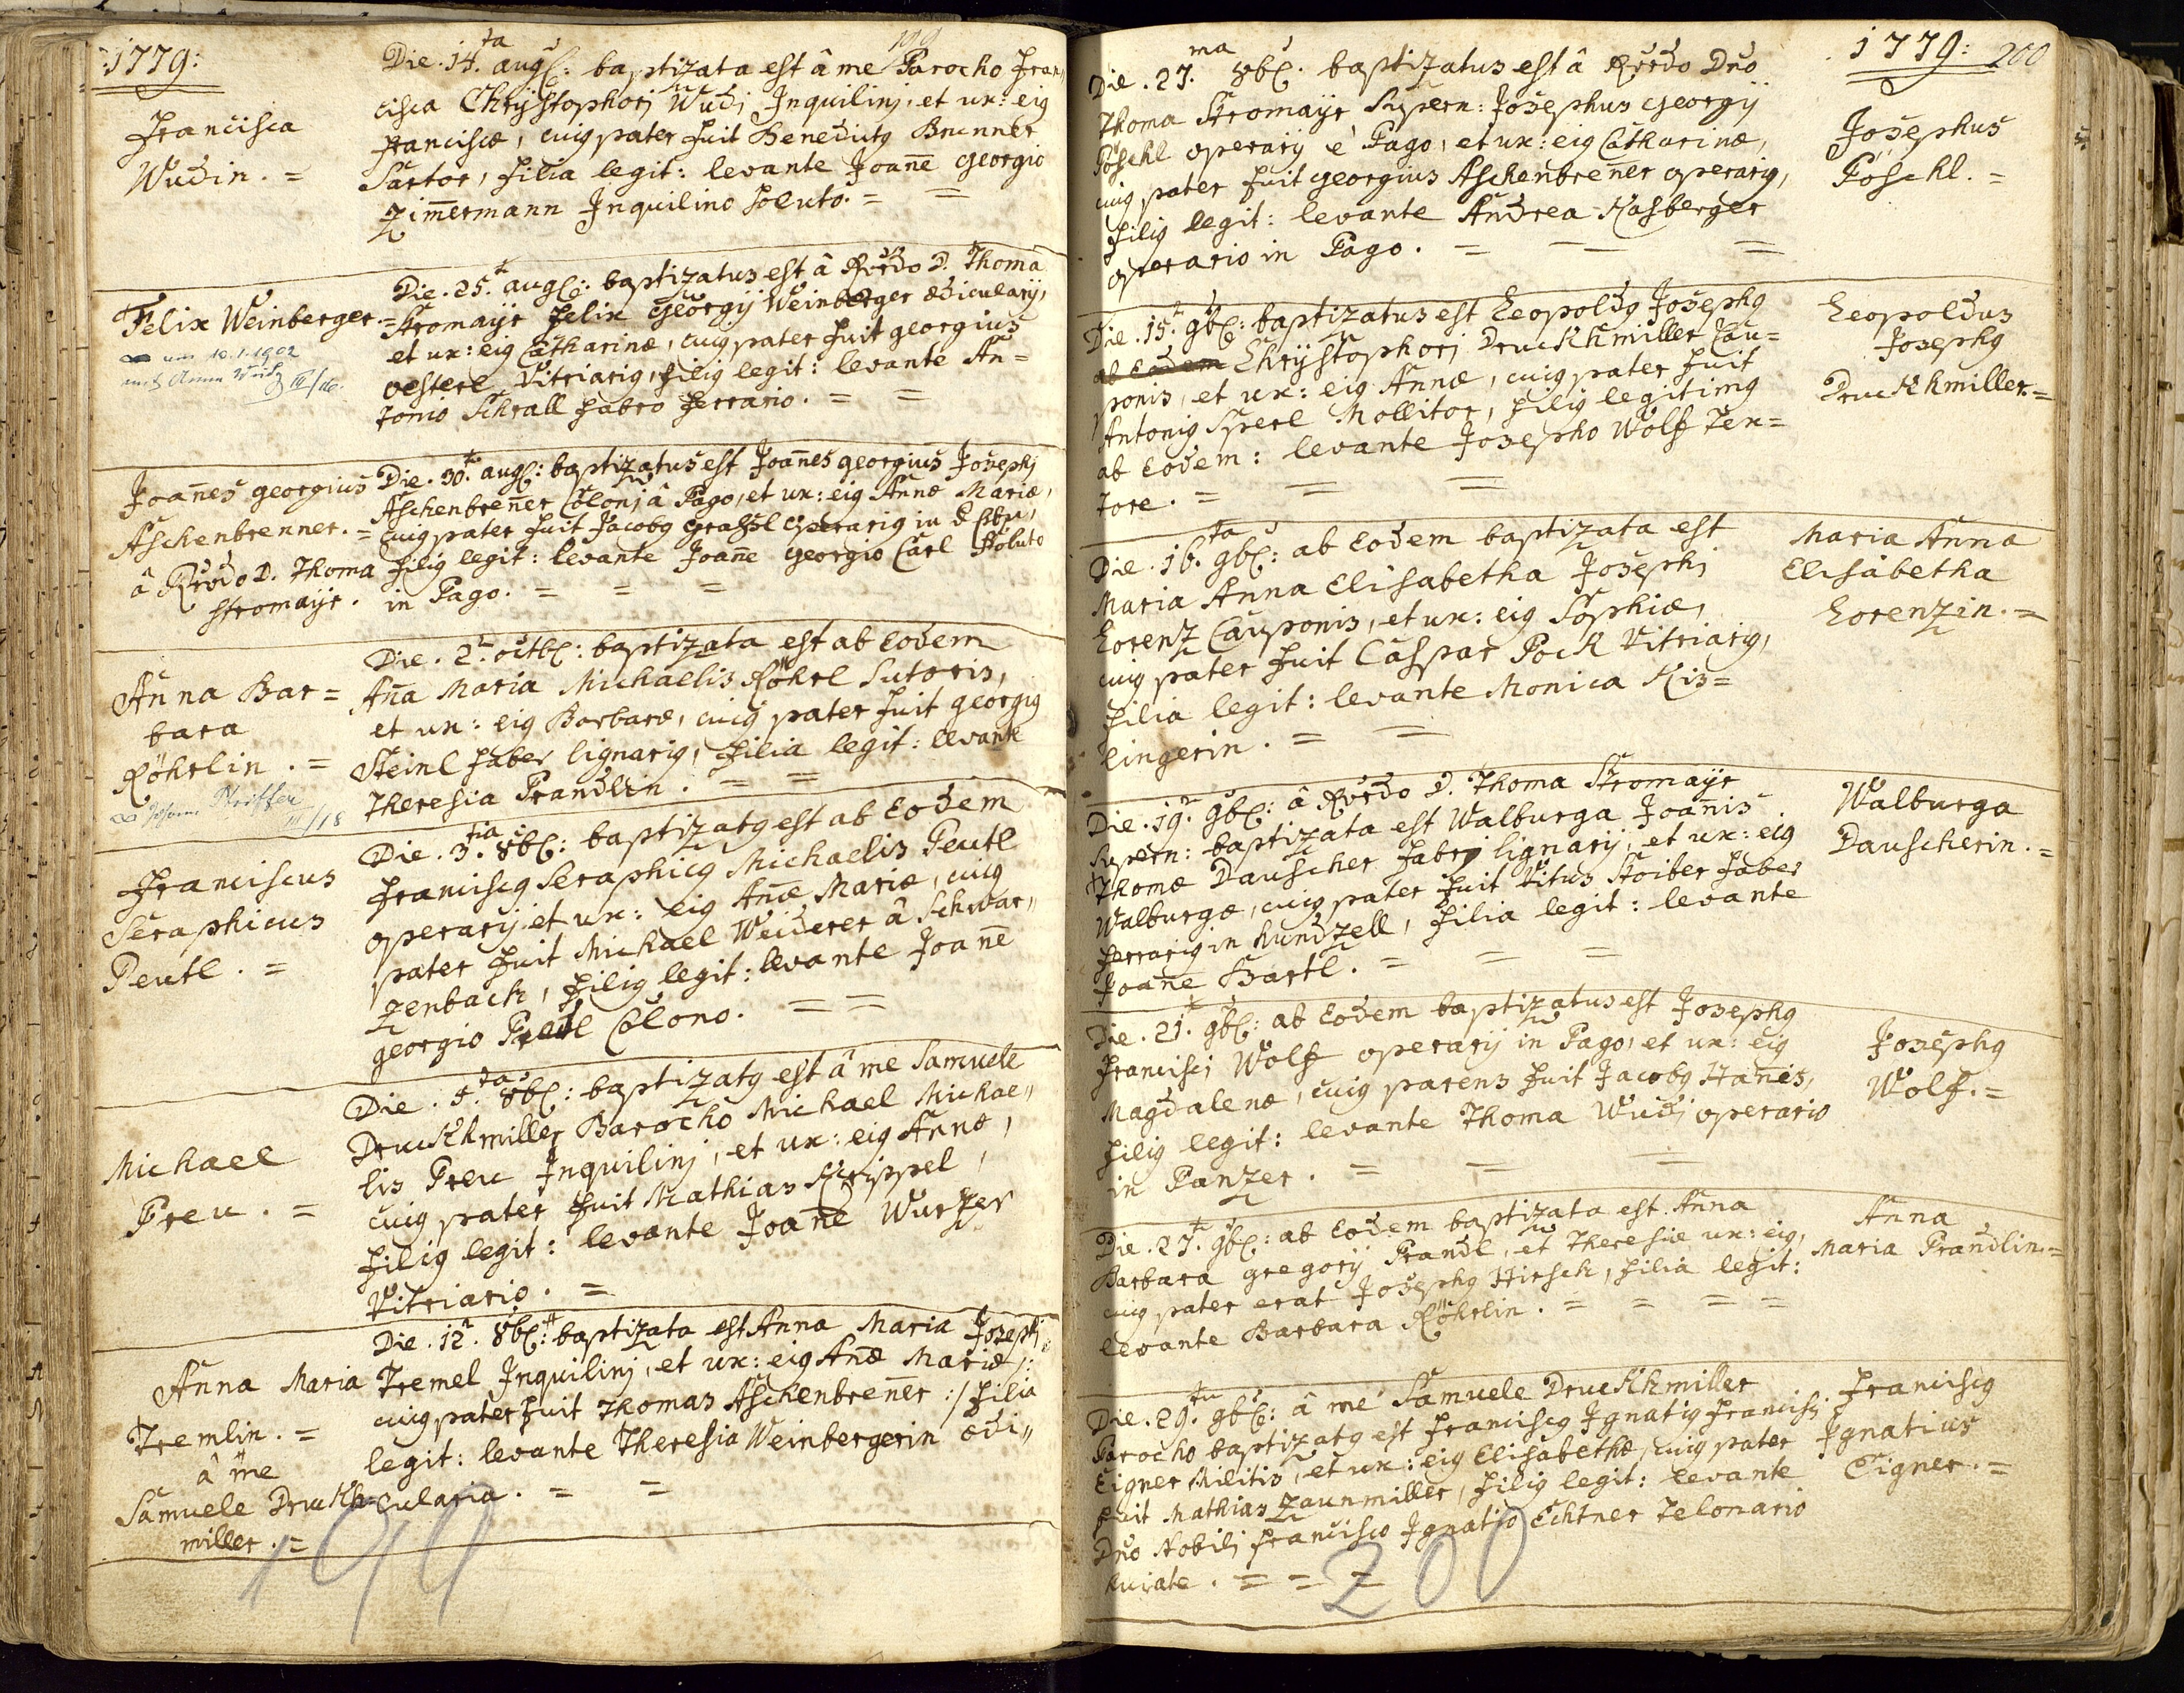 :1779:
199
Francisca
Wudin. =
Die. 14.ta augl: baptizata est â me Parocho Fran„
cisca Chrÿstophorj Wudj Inquilinj, et ux: eig
franciscæ, cuig pater fuit Benedictg Brunner
Sartor, filia legit: levante Joane georgio
Zimermann Inquilino Soluto. = =
Felix Weinberger. =
Die. 25.t augl: baptizatus est â Rvrdo D. Thoma
Stromayr Felix Georgij Weinberger ædicularij,
et ux: eig Catharinæ, cuig pater fuit georgius
oesterl Vitriarig, filig legit: levante An=
tonio Schrall fabro ferrario. = =
um 10.1.1902
Joanes georgius
Aschenbrenner. =
â Rvrdo D. Thoma
Stromayr.
Die. 30. augl: baptizatus est Joanes georgius Josephj
Aschenbrener Colonj â Pago, et ux: eig Annæ Mariæ,
cuig pater fuit Jacobg grassl operarig in
filig legit: levante Joane georgio Carl Soluto
in Pago. = = =
Anna Bar=
bara
Röhrlin. =
Die. 2. octbl: baptizata est ab Eodem
Ana Maria Michaelis Röhrl Sutoris,
et ux: eig Barbaræ, cuig pater fuit georgig
Steinl faber lignarig, filia legit: levante
Theresia Prandlin. = =
III/18
Franciscus
Seraphicus
Peutl. =
Die. 3.tia 8bl: baptizatg est ab Eodem
Franciscg Seraphicg Michaelis Peutl
operarij et ux: eig Anæ Mariæ, cuig
pater fuit Michael Weiderer â Schwar„
zenbach, filig legit: levante Joane
georgio Preidl Colono. = =
Michael
Preu. =
Die. 5.ta 8bl: baptizatg est â me Samuele
Druckhmiller Barocho Michael Michae„
lis Preu Inquilinj, et ux: eig Annæ,
cuig pater fuit Mathias Krippel,
filig legit: levante Joane Wurzer
Vitriario. =
Anna Maria
Tremlin. =
â me
Samuele Druckh=
miller. =
Die. 12. 8bl: baptizata est Anna Maria Josephj
Tremel Inquilinj, et ux: eig Anæ Mariæ,:
cuig pater fuit Thomas Aschenbrener :/ filia
legit: levante Theresia Weinbergerin ædi„
cularia. = =
199
1779: 200
Die. 27.ma 8bl. baptizatus est â Rvrdo Dno
Thoma Stromayr Supern: Josephus georgij
Pöschl operarij è Pago, et ux: eig Catharinæ,
cuig pater fuit georgius Aschenbrener operarig,
filig legit: levante Andrea Kasberger
operario in Pago. = = =
Josephus
Pöschl. =
Die. 15. 9bl: baptizatus est Leopoldg Josephg
ab Eodem Chrÿstophorj Druckhmiller Cau=
ponis, et ux: eig Annæ, cuig pater fuit
Antonig Sperl Mollitor, filig legitimg
ab Eodem: levante Josepho Wolf Tex=
tore. = = =
Leopoldus
Josephg
Druckhmiller. =
Die. 16.ta 9bl: ab Eodem baptizata est
Maria Anna Elisabetha Josephj
Lorenz Cauponis, et ux: eig Sophiæ,
cuig pater fuit Caspar Pock Vitriarig,
filia legit: levante Monica Kis=
lingerin. = =
Maria Anna
Elisabetha
Lorenzin. =
Die. 19. 9bl: â Rvrdo D. Thoma Stromayr
Supern: baptizata est Walburga Joanis
Thomæ Dauscher fabrj lignarij, et ux: eig
Walburgæ, cuig pater fuit Vitus Stoiber faber
ferrarig in Rundzell, filia legit: levante
Joane Bartl. = = =
Walburga
Dauscherin. =
Die. 21. 9bl: ab Eodem baptizatus est Josephg
Franciscj Wolf operarij in Pago, et ux: eig
Magdalenæ, cuig parens fuit Jacobg Hanes,
filig legit: levante Thoma Wudj operario
in Panzer. = = =
Josephg
Wolf. =
Die. 27. 9bl: ab Eodem baptizata est Anna
Barbara gregorij Prandl, et Theresiæ ux: eig,
cuig pater erat Josephg Hirsch, filia legit:
levante Barbara Röhrlin. = = = =
Anna
Maria Prandlin. =
Die. 29. 9bl: â me Samuele Druckhmiller
Parocho baptizatg est Franciscg Ignatig Francisj
Eigner Militis, et ux: eig Elisabethæ, cuig pater
fuit Mathias Zaunmiller, filig legit: levante
Dno Nobilj Francisco Ignatio Echtner Telonario
= = =
Franciscg
Ignatius
Eigner. =
200